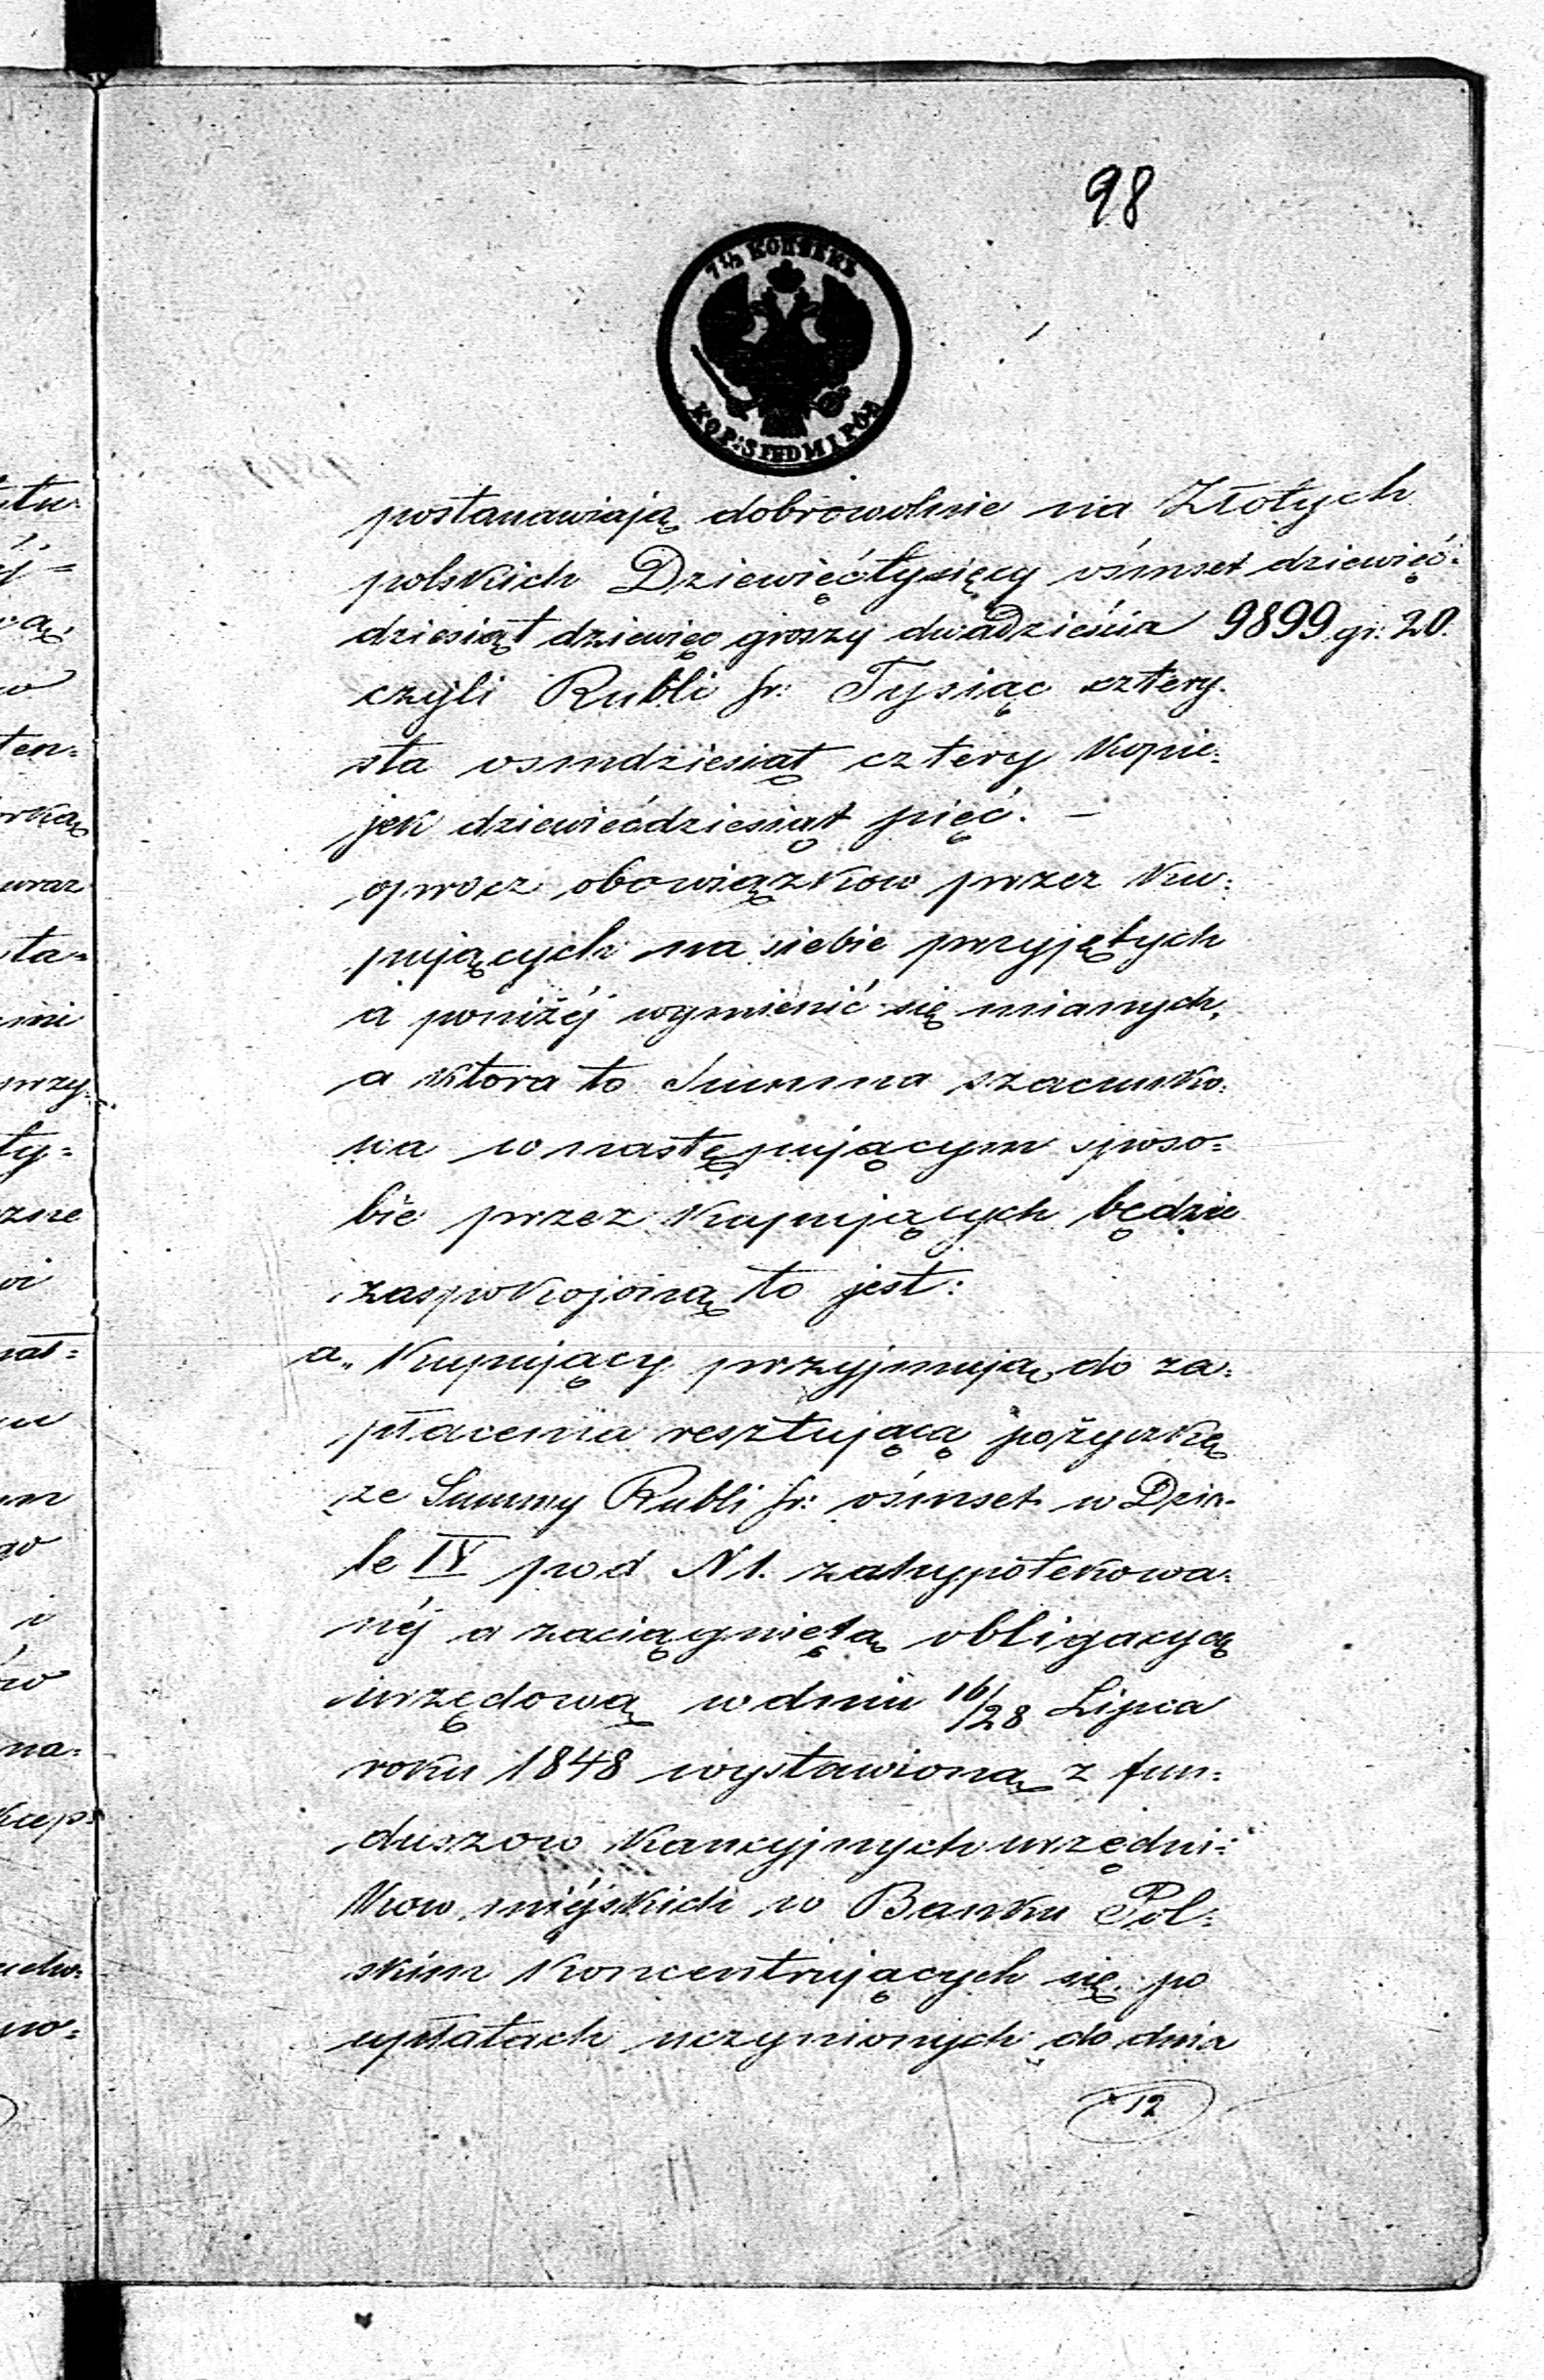 98
7 1/2 КОПѢЕКЪ
KOP: SIEDM I PÓŁ
postanawiają dobrowolnie na Złotych
polskich Dziewięćtysięcy ośmset dziewięć-
dziesiąt dziewięć groszy dwadzieścia 9899 gr: 20.
czyli Rubli sr: Tysiąc cztery-
sta osmdziesiąt cztery kopie-
jek dziewiećdziesiąt pięć. —
oprocz obowiązkow przez ku-
pujących na siebie przyjętych
a poniżéj wymienić się mianych,
a ktora to Summa szacunko-
wa w następującym sposo-
bie przez kupujących będzie
zaspokojoną to jest:
a„ Kupujący przyjmują do za-
płacenia resztującą pożyczkę
ze Summy Rubli sr: ośmset w Dzia-
le IV pod N 1. zahypotekowa-
néj a zaciągniętą obligacyą
urzędową w dniu 16/28 Lipca
roku 1848 wystawioną z fun-
duszow kaucyjnych urzędni-
kow miéjskich w Banku Pol-
skim koncentrujących się po
upłatach uczynionych do dnia
12